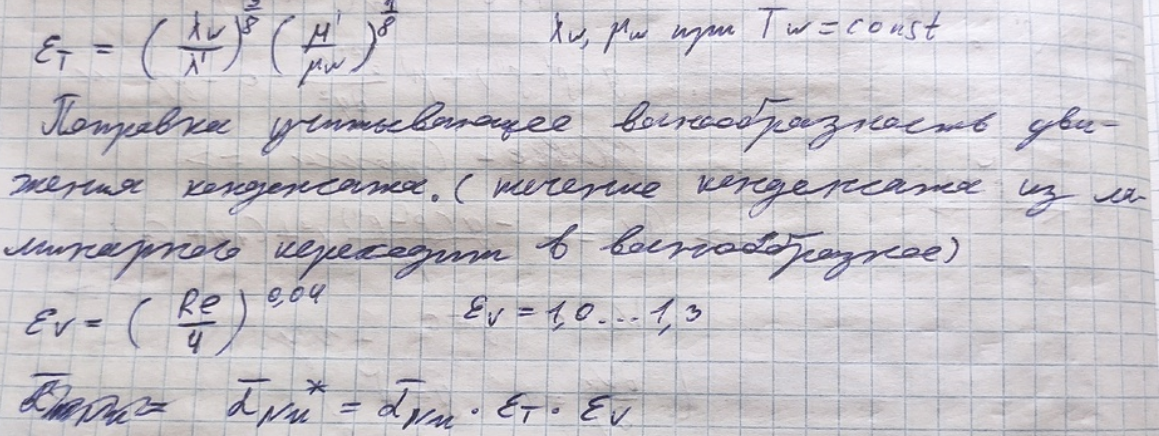 ε_T = (λw/λ')^(3/8) (μ'/μw)^(1/8) λw, μw при Tw = const
Поправка учитывающее волнообразность дви-
жения конденсата. (течение конденсата из ла-
минарного переходит в волнообразное)
ε_V = (Re/4)^0,04 ε_V = 1,0...1,3
ᾱ_Nu* = ᾱ_Nu · ε_T · ε_V